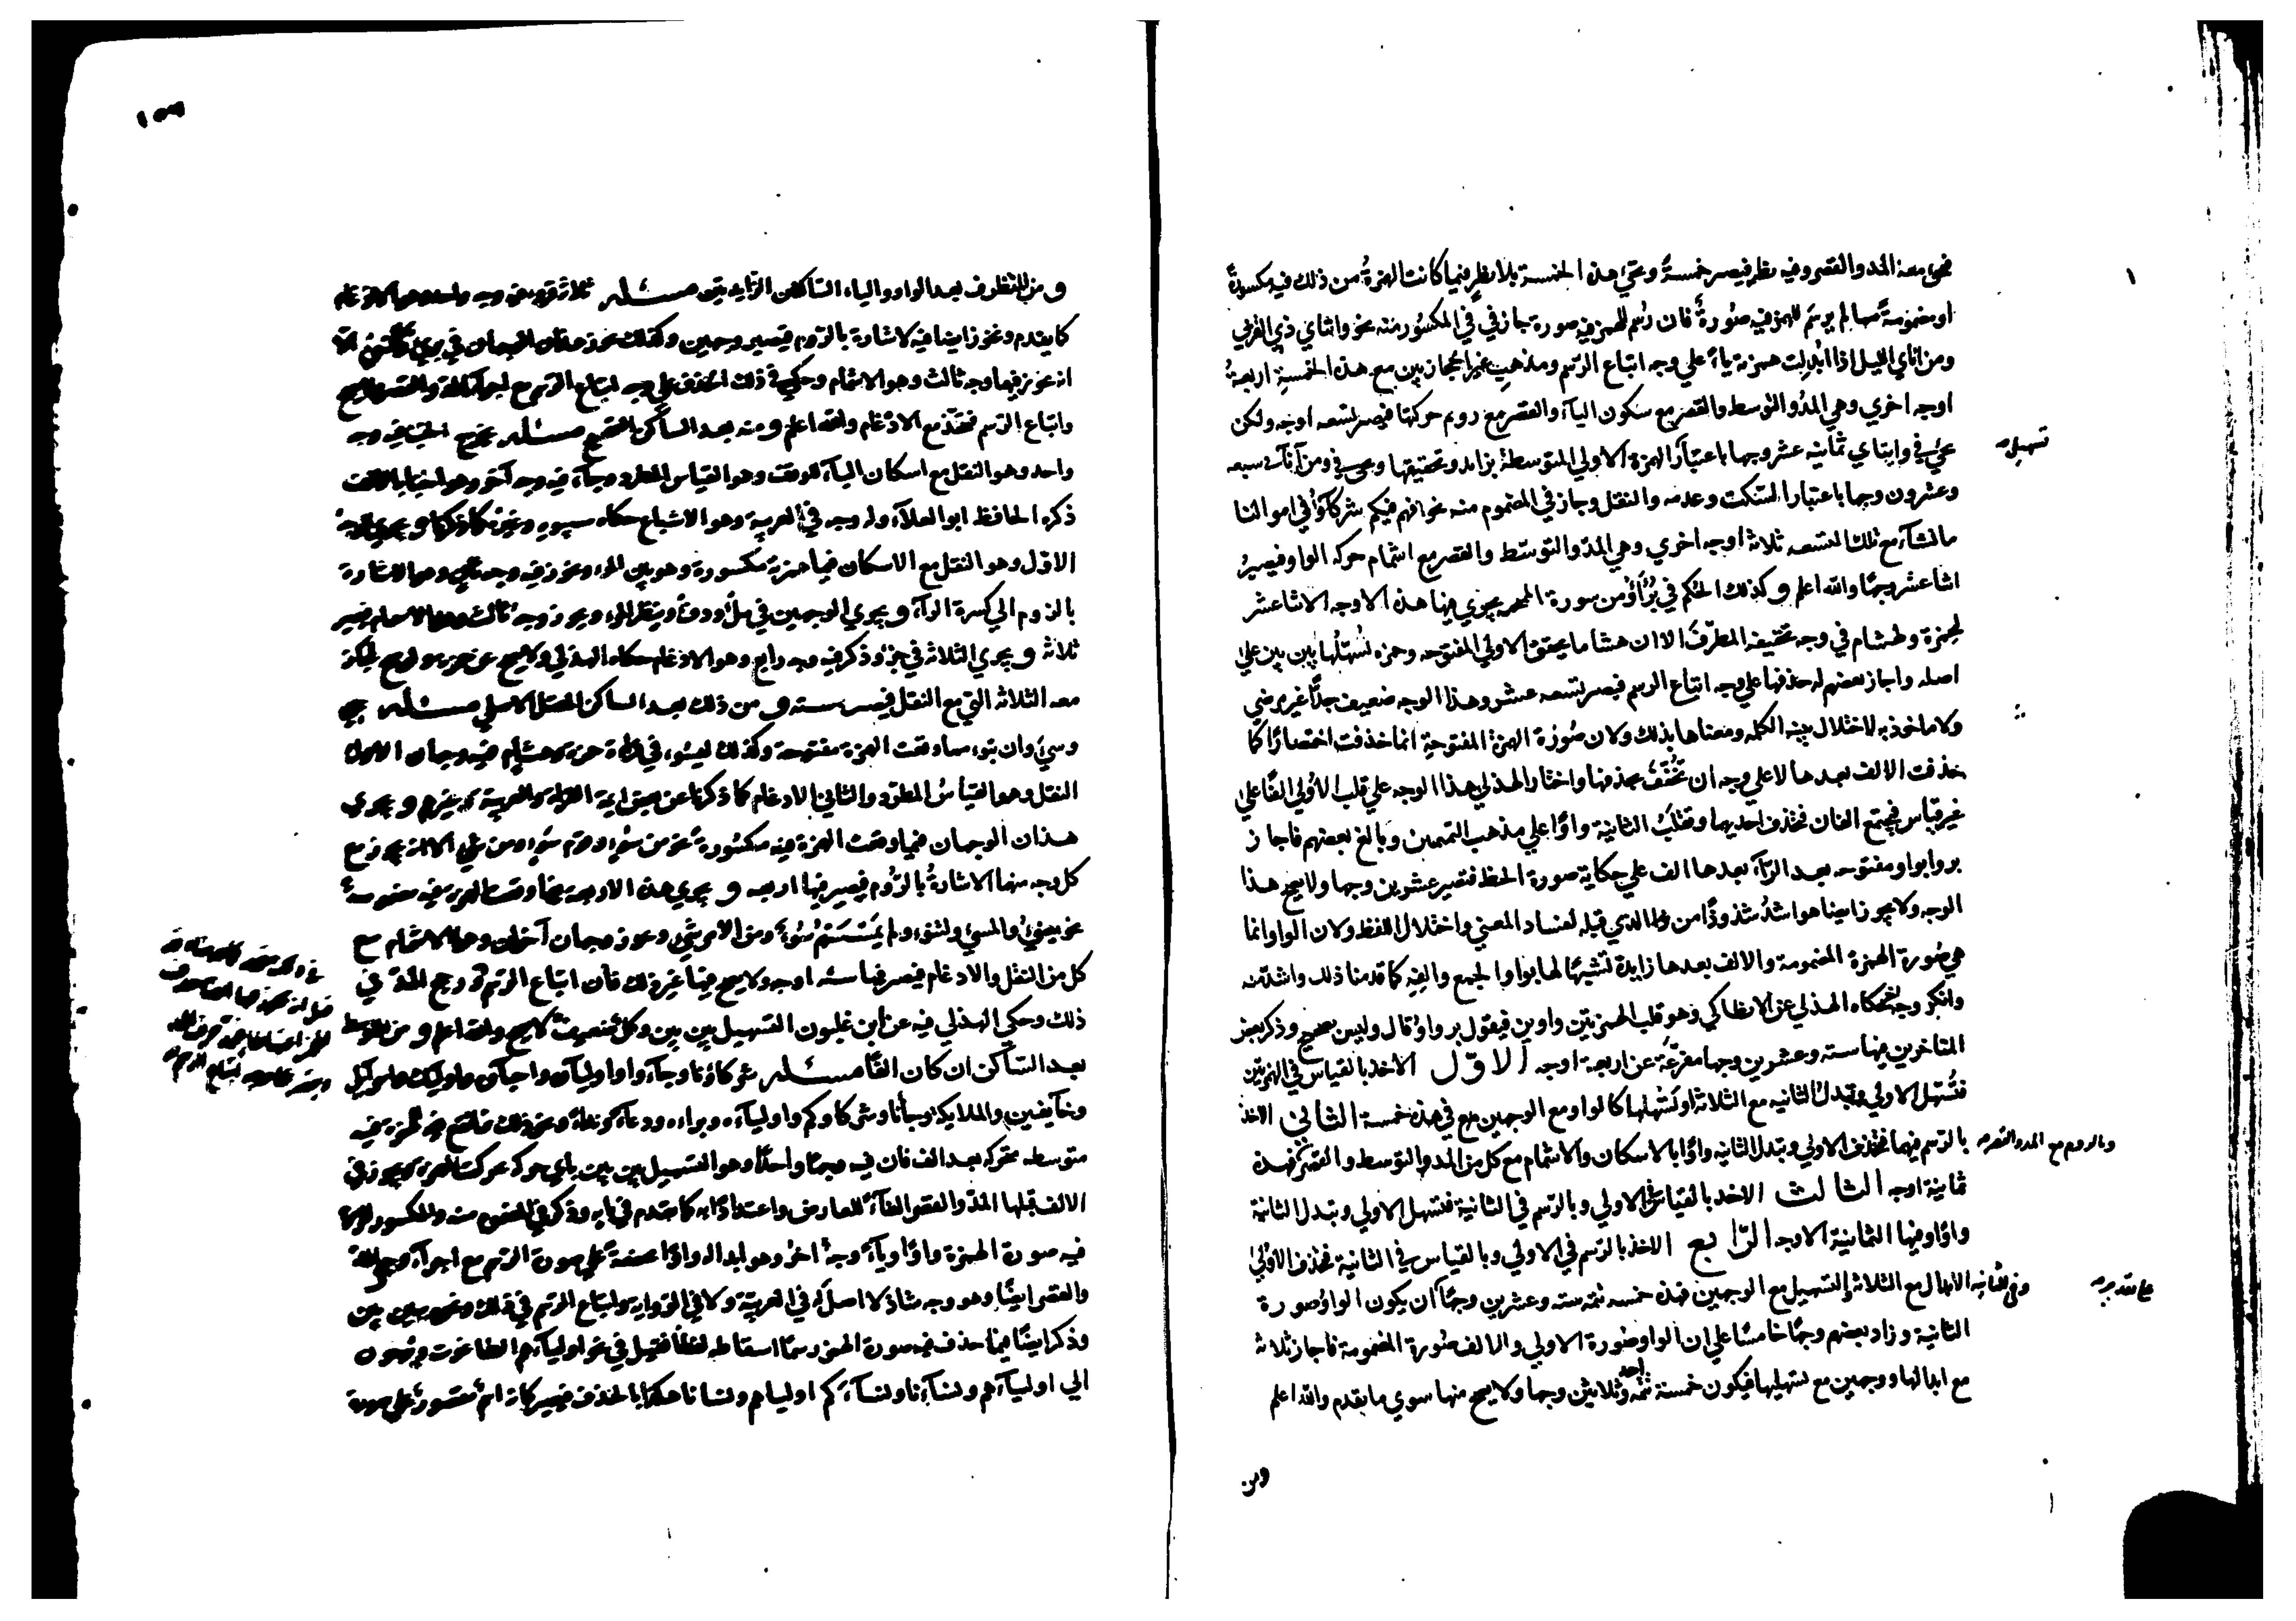 فتجيء معه المد والقصر وفيه نظر فيصير خمسةً وتجيء هذه الخمسة بلا نظر فيما كانت الهمزةُ من ذلك فيه مكسورةً
او مضمومةً مما لم يرسَم للهمز فيه صُورةٌ فان رُسم للهمز فيه صورة جاز في المكسُور منه نحو وايتاي ذي القربي
ومن اناي الليل اذا ابُدلِت همزته ياءً علي وجه اتباع الرسم ومذهب غير الحجازيين مع هذه الخمسةِ اربعةُ
اوجه اخري وهي المدُ والتوسط والقصر مع سكون الياَء والقصر مع روم حركتها فيصير تسعه اوجه ولكن
يجيء في وايتاي ثمانيه عشر وجها باعتبار الهمزة الاولي المتوسطة بزايد وتحقيقها ويجيء في ومن آناَء سبعه
وعشرون وجها باعتبار السَكت وعدمه والنقل وجاز في المضموم منه نحو انهم فيكم شركآؤُا في اموالنا
ما نشآء مع تلك التسعه ثلاثة اوجه اخري وهي المدّ والتوسّط والقصر مع اشمام حركه الواو فيصيرُ
اثنا عشر وجهًا والله اعلم وكذلك الحُكم في بُرَآؤُ من سورة الممتحنه يجري فيها هذه الاوجه الاثنا عشر
لحمزة ولهشام في وجه تخفيفه المطرَّفَ الا ان هشاما يحقق الاولي المفتوحه وحمزه يُسَهّلُها بين بين علي
اصله واجاز بعضهم له حذفها علي وجه اتباع الرسم فيصير تسعه عشر وهذا الوجه ضعيف جدًا غير مرضي
ولا ماخوذ به لاختلال بنِيه الكلمه ومعناها بذلك ولان صُورَة الهمزة المفتوحةِ انما حذفت اختصارًا كما
حذفت الالف بعدها لا علي وجه ان تُخَفَّفَ بحذفها واختار الهذلي هذا الوجه علي قلب الاُولي الفًا علي
غير قياس فيجتمع الفان فتحذف احديهما وتُقلَبُ الثانيةُ واوًا علي مذهب التميميين وبالغ بعضهم فاجاز
بروا بواو مفتوحه بعد الرآء بعدها الف علي حكاية صورة الخط فتصير عشرين وجها ولا يصح هذا
الوجه ولا يجوز ايضا هو اشدُ شذوذًا من الذي قبله لفساد المعني واختلال اللفظ ولان الواو انما
هي صُورة الهمزة المضمومة والالف بعدها زايدة تشبيهًا لها بواو الجمع والفِه كما قدمنا ذلك واشدُّ منه
وانكر وجه حكاه الهذلي عن الانطاكي وهو قلب الهمزتين واوين فيقول برواوُ قال وليس بصحيح وذكر بعض
المتاخرين فيها سته وعشرين وجها مفرعَّة عن اربعة اوجه الاوّل الاخذ بالقياس في الهمزتين
فتُسَهل الاولي وتبدلُ الثانيه مع الثلاثه او تسَهلها كالواو مع الوجهين فهذه خمسة الثاني الاخذ
بالرَسم فيهما فتحذف الاولي وتبدل الثانيه واوًا بالاسكان والاشمام مع كل من المد والتوسط والقصر فهذه
ثمانية اوجه الثالث الاخد بالقياس في الاولي وبالرسم في الثانية فتسهل الاولي وتبدل الثانية
واوًا وفيها الثمانية الاوجه الرّابع الاخذ بالرسم في الاولي وبالقياس في الثانية فتحذف الاُوليُ
وفي الثانيه الابدال مع الثلاثه والتسهيل مع الوجهين فهذه خمسه تتمه سته وعشرين وجهًا علي تقدير ان يكون الواوُ صورة
الثانية وزاد بعضهم وجهًا خامسًا علي ان الواو صُورة الاولي والالف صُورة المضمومة فاجاز ثلاثة
مع ابدالها ووجهين مع تسهيلها فيكون خمسة تتمَّه احد وثلاثين وجها ولا يصح منها سوي ما تقدم والله اعلم
تسهيله
وبالروم مع المد والقصر
ومن
ومن المتطرف بعد الواو والياء الساكنين الزايدتين مسئله ثلاثة قروء فيه وجه واحد وهو الادغام
كما يقدم ويجوز ايضا فيه الاشارة بالروم فيصير وجهين وكذلك يجوز هذان الوجهان في بريء
انه يجوز فيهما وجه ثالث وهو الاشمام وحكي في ذلك الحذف علي وجه اتباع الرسم مع اجرآء المد والقصر ولا يصح
واتباع الرسم متحد مع الادغام والله اعلم ومنه بعد الساكن الصحيح مسئله يخرج الخبء فيه وجه
واحد وهو النقل مع اسكان الباء للوقف وهو القياس المطرد وجآء فيه وجه آخر وهو الخبا بالالف
ذكره الحافظ ابو العلآء وله وجه في العربية وهو الاشباع حكاه سيبويه وغيره كما ذكرنا ويجري الوجه
الاوّل وهو النقل مع الاسكان فيما همزته مكسورة وهو بين المرء ويجوز فيه وجه ثاني وهو الاشارة
بالروم الي كسرة الرآء ويجري الوجهين في مِلءُ ودفءُ وينظر المرء ويجوز وجه ثالث وهو الاشمام فيصير
ثلاثه ويجري الثلاثه في جزء وذكر فيه وجه رابع وهو الادغام حكاه الهذلي ولا يصح
معه الثلاثه التي مع النقل فيصير سته ومن ذلك بعد الساكن المعتل الاصلي مسئله جيء
وسيء وان تبوء مما وقعت الهمزة مفتوحة وكذلك ليسُوء في قراءة حمزه وهشام فيه وجهان الاول
النقل وهو القياسُ المطرد والثاني الادغام كما ذكرنا عن بعض ايمة القراءة والعربية وغيرهم ويجري
هذان الوجهان فيما وقعت الهمزة فيه مكسُورةً نحو من سُوءِ وقوم سَوء ومن شيء الا انه يجوز مع
كل وجه منهما الاشارةُ بالرَوم فيصير فيها اربعه ويجري هذه الاربعة فيما وقعت الهمزة فيه مضمومةً
نحو يضيءُ والمسيُء ولتنوء ولم يَمْسَسهُم سُوءٌ ومن الامر شيٌء ويجوز وجهان آخران وهما الاشمام مع
كل من النقل والادغام فيصير فيها سته اوجه ولا يصح فيها غير ذلك فان اتباع الرسم
ذلك وحكي الهذلي فيه عن ابن غلبون التسهيل بين بين وكلُّ ضعيفٌ لا يصح والله اعلم ومن المتوسط
بعد السَاكن ان كان الفًا مسئله شركاؤنا وجآءوا واوليآؤه واحباؤه واوليك واسرآيل
وخآيفين والملايكة وجآنا وشركاوكم واوليآءه وبراء ودعآءً ونداءً ونحو ذلك مما تقع الهمزة فيه
متوسطه متحركه بعد الف فان فيه وجهًا واحدًا وهو التسهيل بين بين باي حركه تحركت الهمزة ويجوز في
الالف قبلها المدّ والقصر الغآءً للعارض واعتدادًا به كما تقدم في بابه وذكر في المضموم منه والمكسور
فيه صورة الهمزة واوًا وياءً وجهٌ اخرُ وهو ابداله واوًا محضةً علي صورة الرسم مع اجرآء وجهي المد
والقصر ايضًا وهو وجه شاذ لا اصل له في العربيّة ولا في الرواية واتباع الرسم في ذلك ونحوه بين بين
وذكر ايضًا فيما حذف فيه صورة الهمز رسمًا اسقاطه لفظا فقيل في نحو اوليآؤهم الطاغوت ويوحون
الي اوليآءهم ونسآءنا ونسآءكم اوليهم ونسانا هكذا بالحذف فيصير كانه اسم مقصور علي صورة